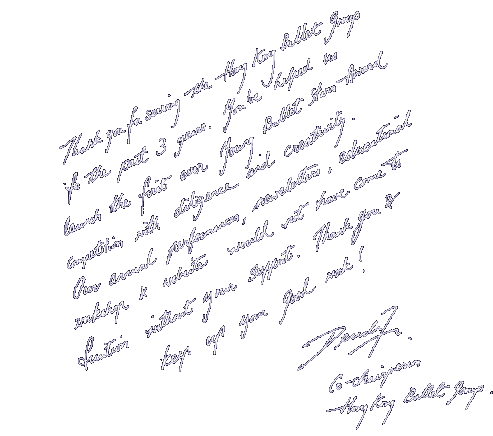 Thank you for serving the Hong Kong Ballet Group
for the past 3 years. You've helped us
launch the first ever Young Ballet Stars Award
competition with diligence and creativity.
Our annual performances, newsletters, educational
workshop & website would not have come to
fruition without your support. Thank you &
keep up your good work!
Co-chairperson
Hong Kong Ballet Group.